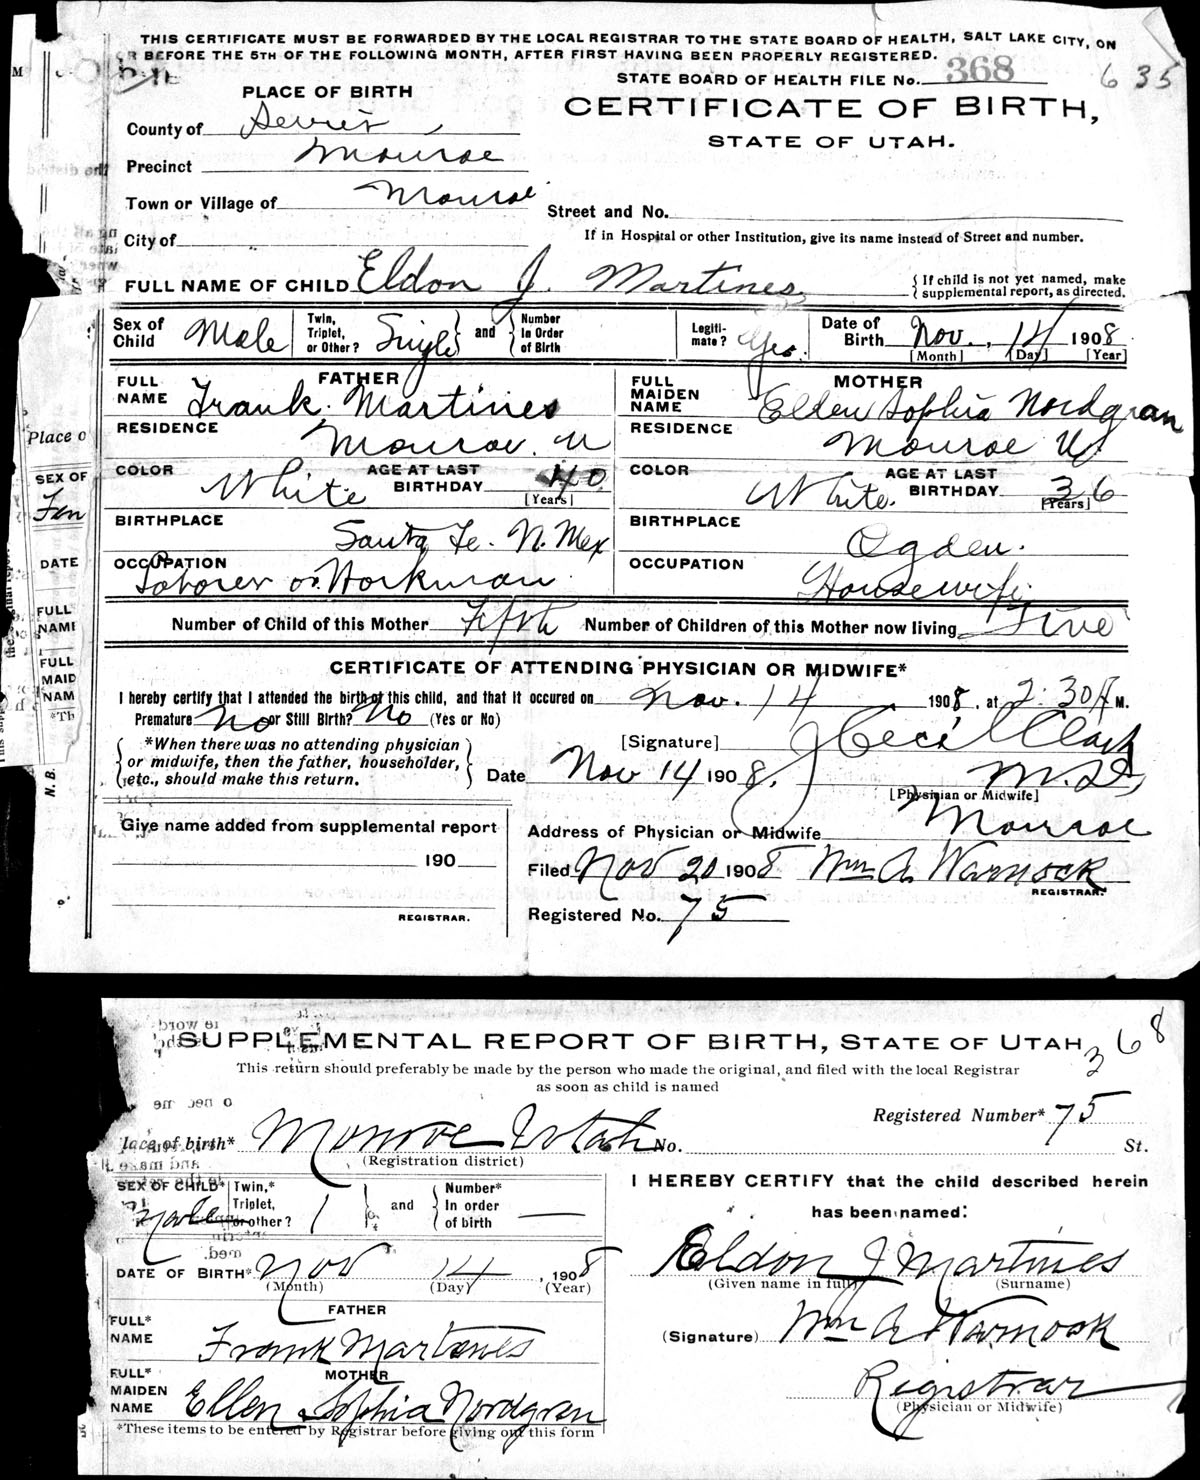 THIS CERTIFICATE MUST BE FORWARDED BY THE LOCAL REGISTRAR TO THE STATE BOARD OF HEALTH, SALT LAKE CITY, ON
OR BEFORE THE 5TH OF THE FOLLOWING MONTH, AFTER FIRST HAVING BEEN PROPERLY REGISTERED.
STATE BOARD OF HEALTH FILE No. 368
635
PLACE OF BIRTH
CERTIFICATE OF BIRTH,
STATE OF UTAH.
County of Sevier,
Precinct Monroe
Town or Village of Monroe
Street and No.
City of
If in Hospital or other Institution, give its name instead of Street and number.
FULL NAME OF CHILD Eldon J. Martines
{If child is not yet named, make
supplemental report, as directed.
Sex of Child Male
Twin, Triplet, or Other? Single and Number In Order of Birth
Legiti-mate? Yes.
Date of Birth Nov. 14 1908
[Month] [Day] [Year]
FATHER
FULL NAME Frank Martines
RESIDENCE Monroe. U
COLOR White AGE AT LAST BIRTHDAY 40
[Years]
BIRTHPLACE Santa Fe. N. Mex
OCCUPATION Laborer or Workman
MOTHER
FULL MAIDEN NAME Ellen Sophia Nordgran
RESIDENCE Monroe U
COLOR White. AGE AT LAST BIRTHDAY 36
[Years]
BIRTHPLACE Ogden.
OCCUPATION Housewife
Number of Child of this Mother Fifth Number of Children of this Mother now living Five
CERTIFICATE OF ATTENDING PHYSICIAN OR MIDWIFE*
I hereby certify that I attended the birth of this child, and that it occured on Nov. 14 1908, at 2:30 A M.
Premature No or Still Birth? No (Yes or No)
*When there was no attending physician
or midwife, then the father, householder,
etc., should make this return.
[Signature] J Cecil Clark
M. D.
Date Nov 14 1908.
[Physician or Midwife]
Give name added from supplemental report
190
REGISTRAR.
Address of Physician or Midwife Monroe
Filed Nov 20 1908 Wm A. Warnock
REGISTRAR.
Registered No. 75
Place o
SEX OF
Fem
DATE
FULL
NAME
FULL
MAID
NAM
*Th
N. B.
SUPPLEMENTAL REPORT OF BIRTH, STATE OF UTAH
368
This return should preferably be made by the person who made the original, and filed with the local Registrar
as soon as child is named
Registered Number* 75
lace of birth* Monroe Utah No. St.
(Registration district)
SEX OF CHILD* Male
Twin,* Triplet, or other? 1 and Number* In order of birth
DATE OF BIRTH* Nov 14, 1908
(Month) (Day) (Year)
FATHER
FULL* NAME Frank Martines
MOTHER
FULL* MAIDEN NAME Ellen Sophia Nordgren
*These items to be entered by Registrar before giving out this form
I HEREBY CERTIFY that the child described herein
has been named:
Eldon J Martines
(Given name in full) (Surname)
(Signature) Wm A Warnock
Registrar
(Physician or Midwife)